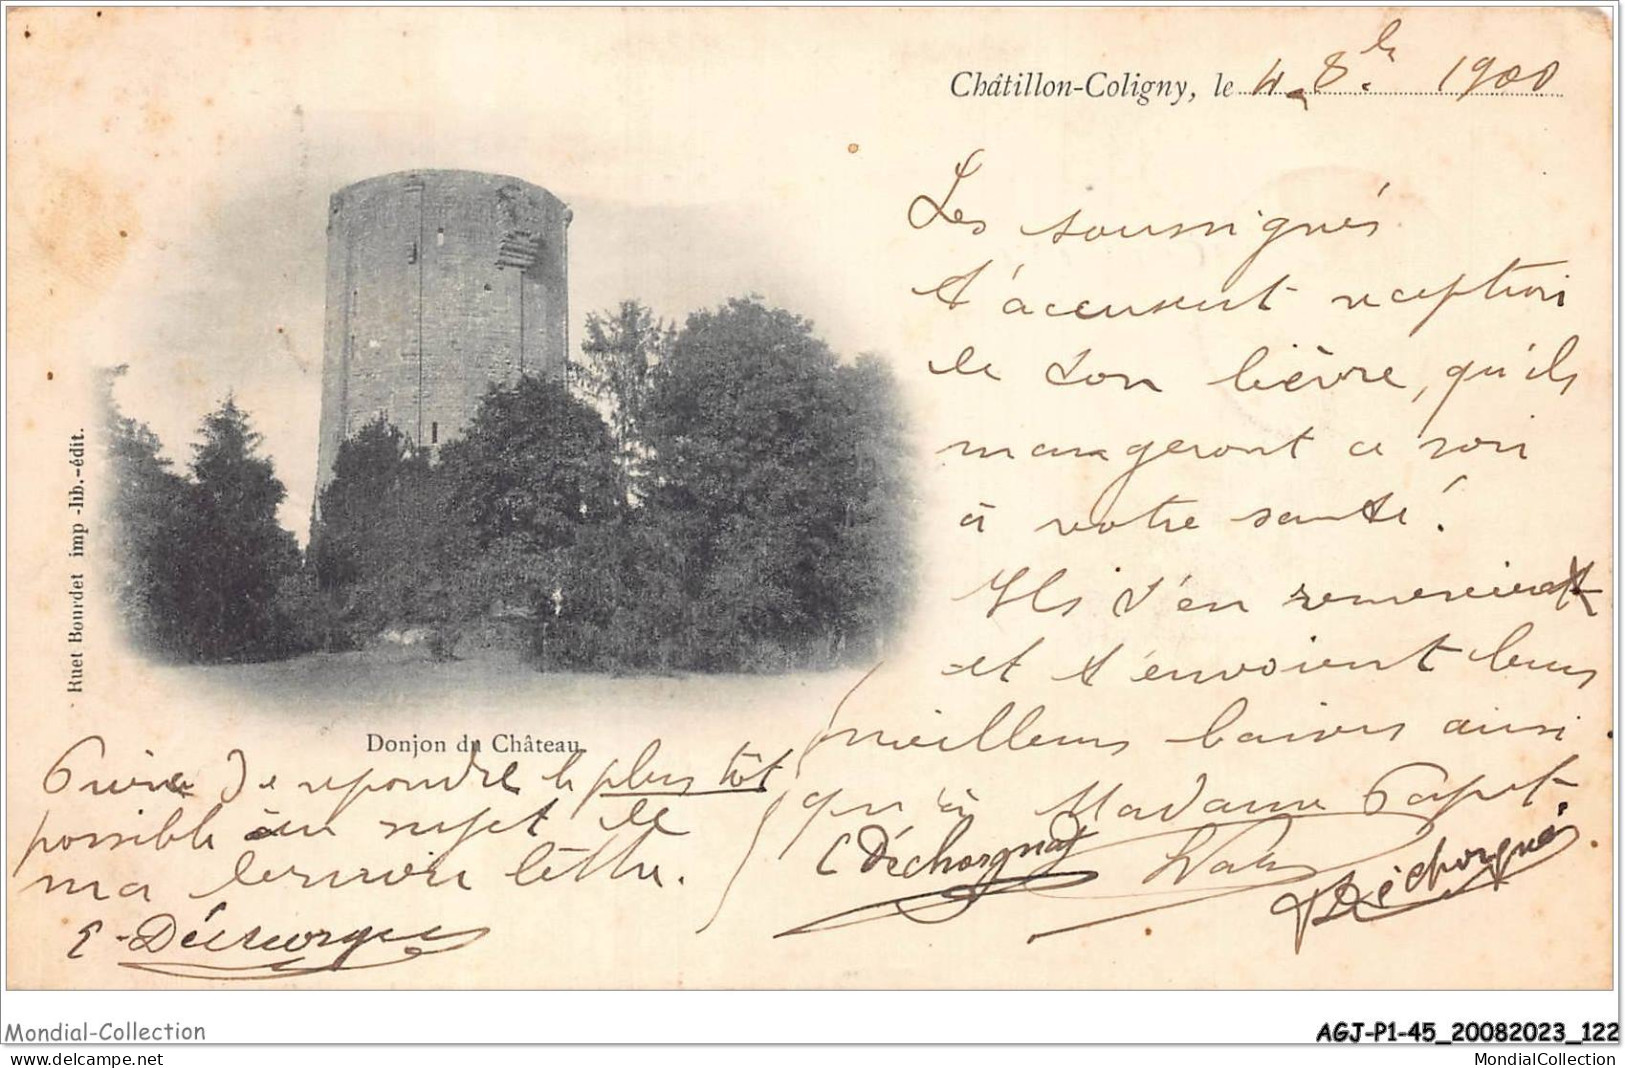 Châtillon-Coligny, le 4 8bre 1900
Les soussignés
t'accusent reception
de ton lièvre, qu'ils
mangeront ce soir
à votre santé!
Ils t'en remercient
et t'envoient leurs
meilleurs baisers ainsi
qu'à Madame Papet.
C Déchorgnat
Déchorgnat
Ruet Bourdet imp-lib.-édit.
Donjon du Château
Prière de repondre le plus tôt
possible au sujet de
ma dernière lettre.
E. Déchorgnat
Mondial-Collection
delcampe.net
AGJ-P1-45_20082023_122
MondialCollection